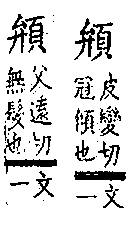 皮變切
冠傾也
文一
父遠切
無髮也
文一